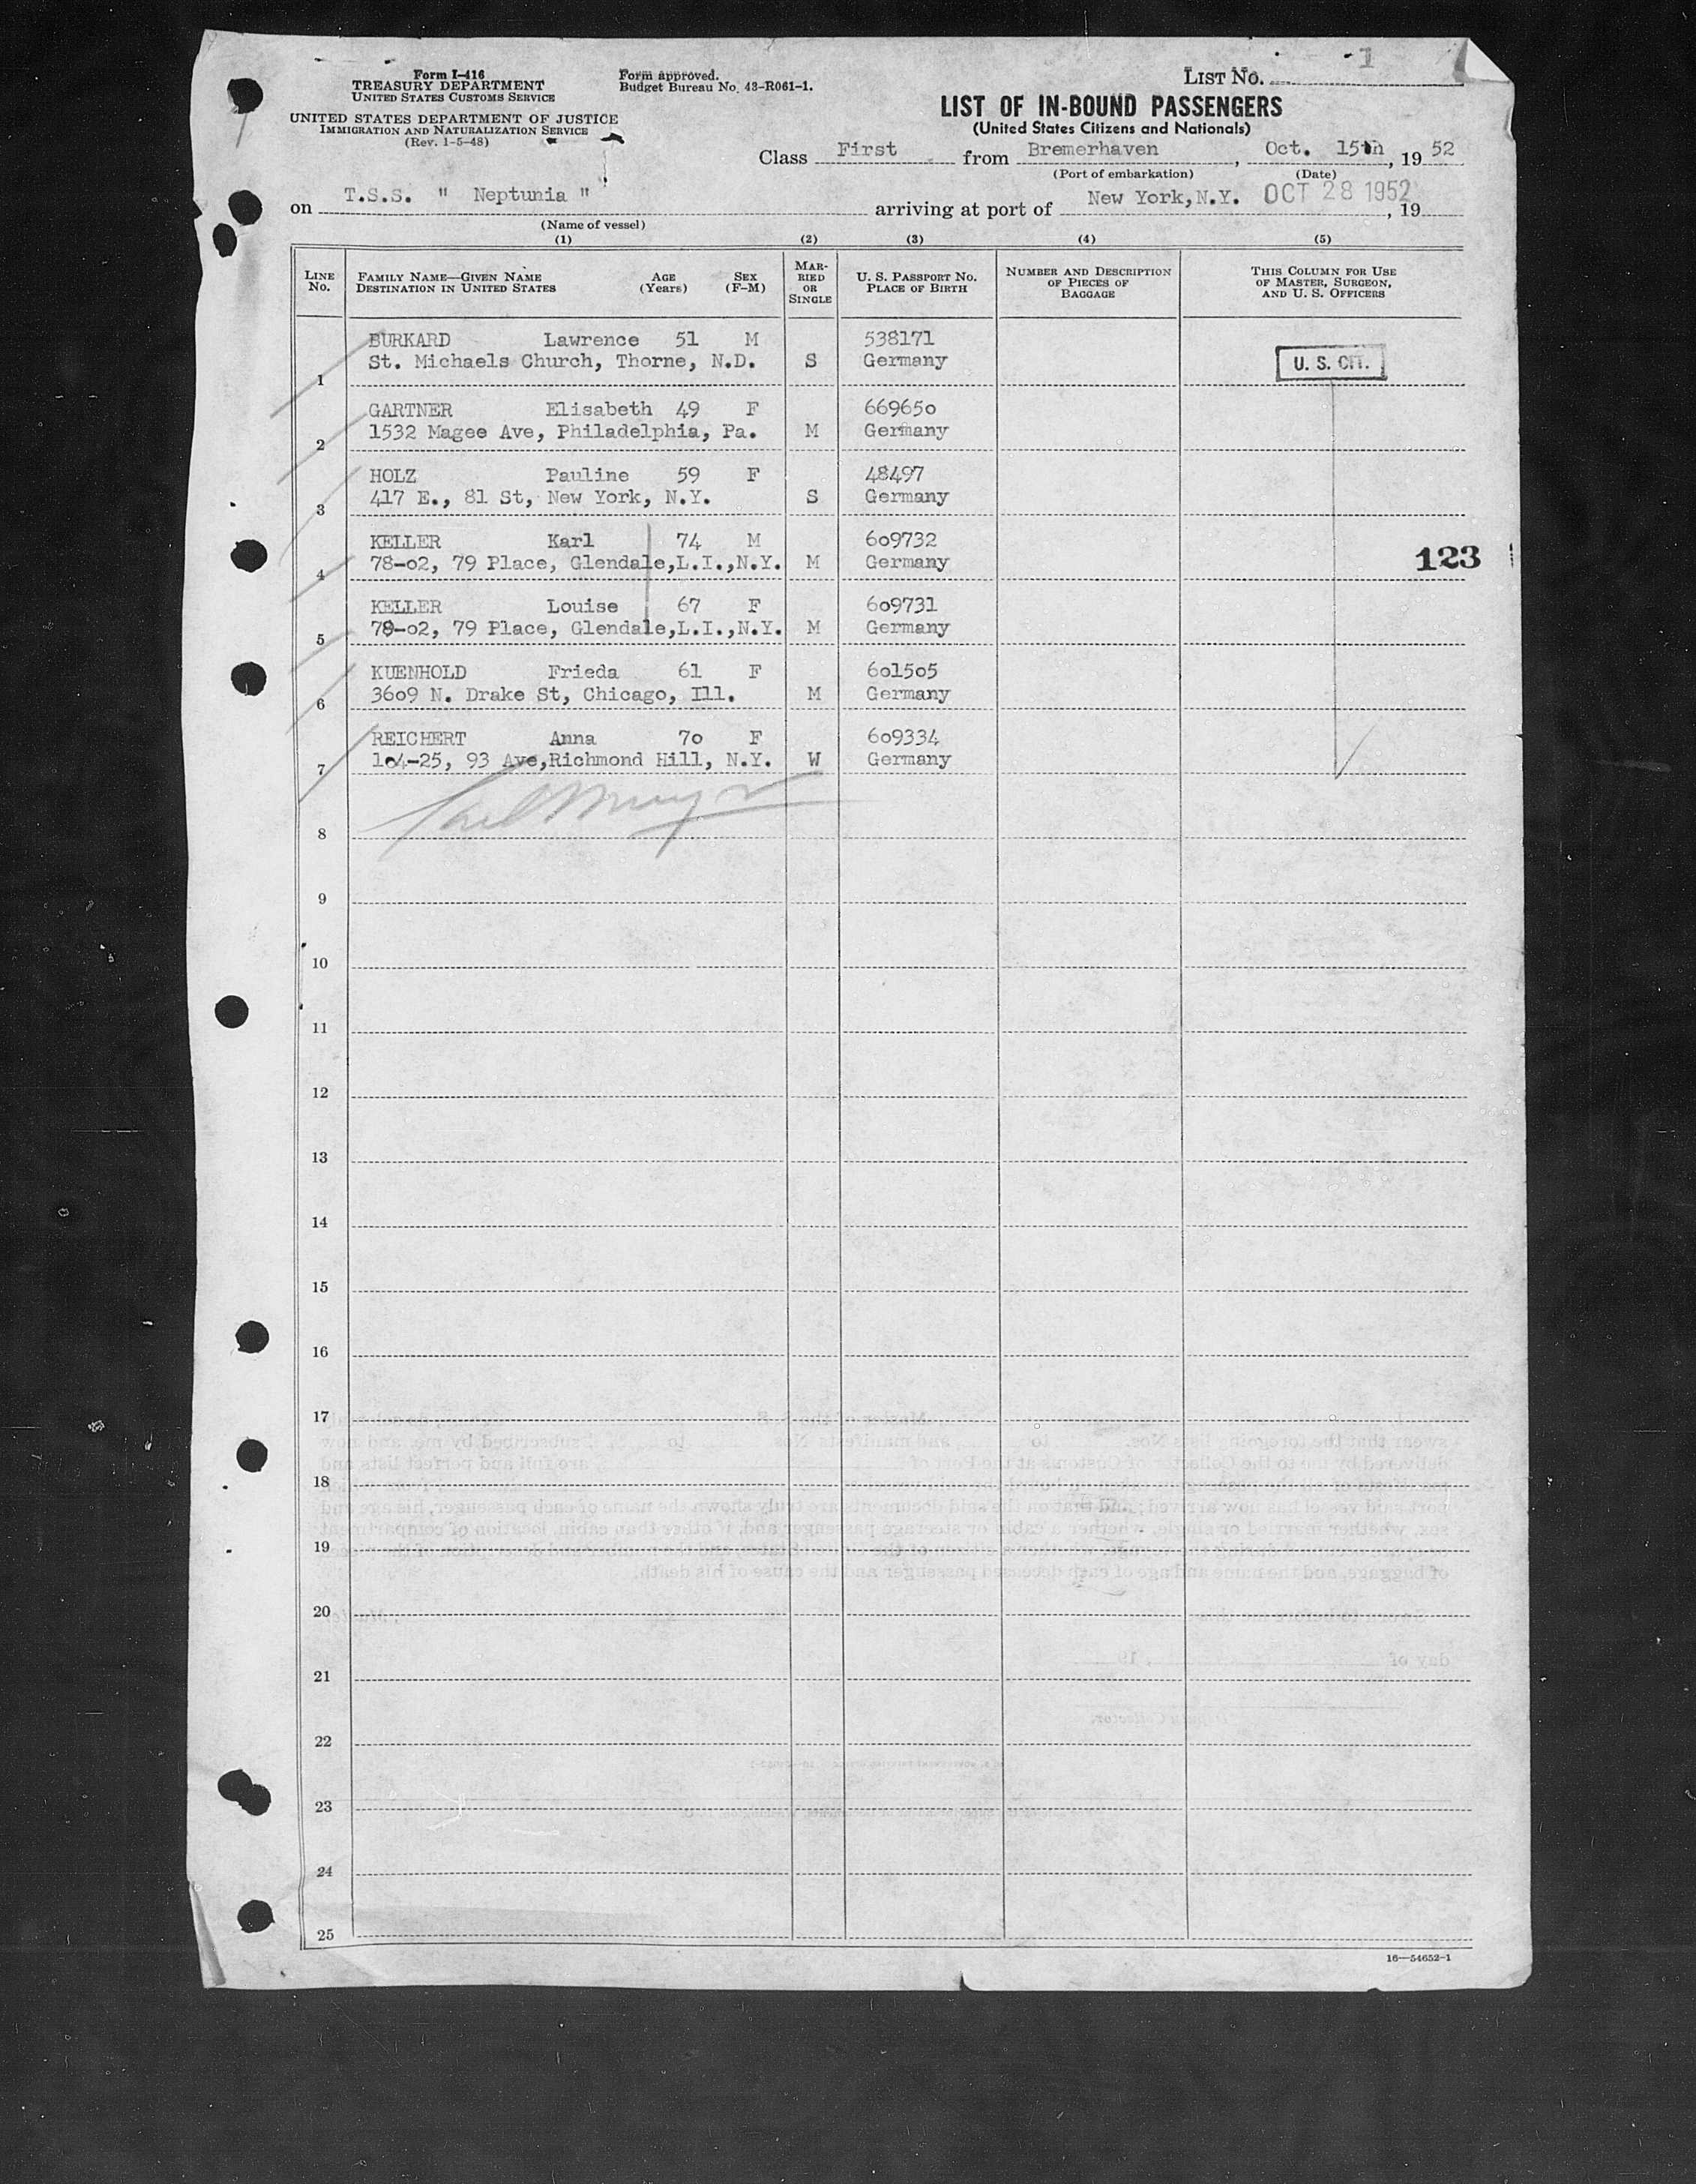 Form I-416
TREASURY DEPARTMENT
UNITED STATES CUSTOMS SERVICE
UNITED STATES DEPARTMENT OF JUSTICE
IMMIGRATION AND NATURALIZATION SERVICE
(Rev. 1-5-48)
Form approved.
Budget Bureau No. 43-R061-1.
LIST NO. 1
LIST OF IN-BOUND PASSENGERS
(United States Citizens and Nationals)
Class First from Bremerhaven, Oct. 15th, 1952
(Port of embarkation) (Date)
on T.S.S. " Neptunia " arriving at port of New York,N.Y. OCT 28 1952, 19
(Name of vessel)
(1) (2) (3) (4) (5)
LINE NO.
FAMILY NAME—GIVEN NAME AGE SEX
DESTINATION IN UNITED STATES (Years) (F-M)
MARRIED OR SINGLE
U. S. PASSPORT NO.
PLACE OF BIRTH
NUMBER AND DESCRIPTION
OF PIECES OF
BAGGAGE
THIS COLUMN FOR USE
OF MASTER, SURGEON,
AND U. S. OFFICERS
BURKARD Lawrence 51 M 538171
1 St. Michaels Church, Thorne, N.D. S Germany U. S. CIT.
GARTNER Elisabeth 49 F 669650
2 1532 Magee Ave, Philadelphia, Pa. M Germany
HOLZ Pauline 59 F 48497
3 417 E., 81 St, New York, N.Y. S Germany
KELLER Karl 74 M 609732
4 78-02, 79 Place, Glendale,L.I.,N.Y. M Germany
123
KELLER Louise 67 F 609731
5 78-02, 79 Place, Glendale,L.I.,N.Y. M Germany
KUENHOLD Frieda 61 F 601505
6 3609 N. Drake St, Chicago, Ill. M Germany
REICHERT Anna 70 F 609334
7 104-25, 93 Ave,Richmond Hill, N.Y. W Germany
8
9
10
11
12
13
14
15
16
17
18
19
20
21
22
23
24
25
16—54652-1